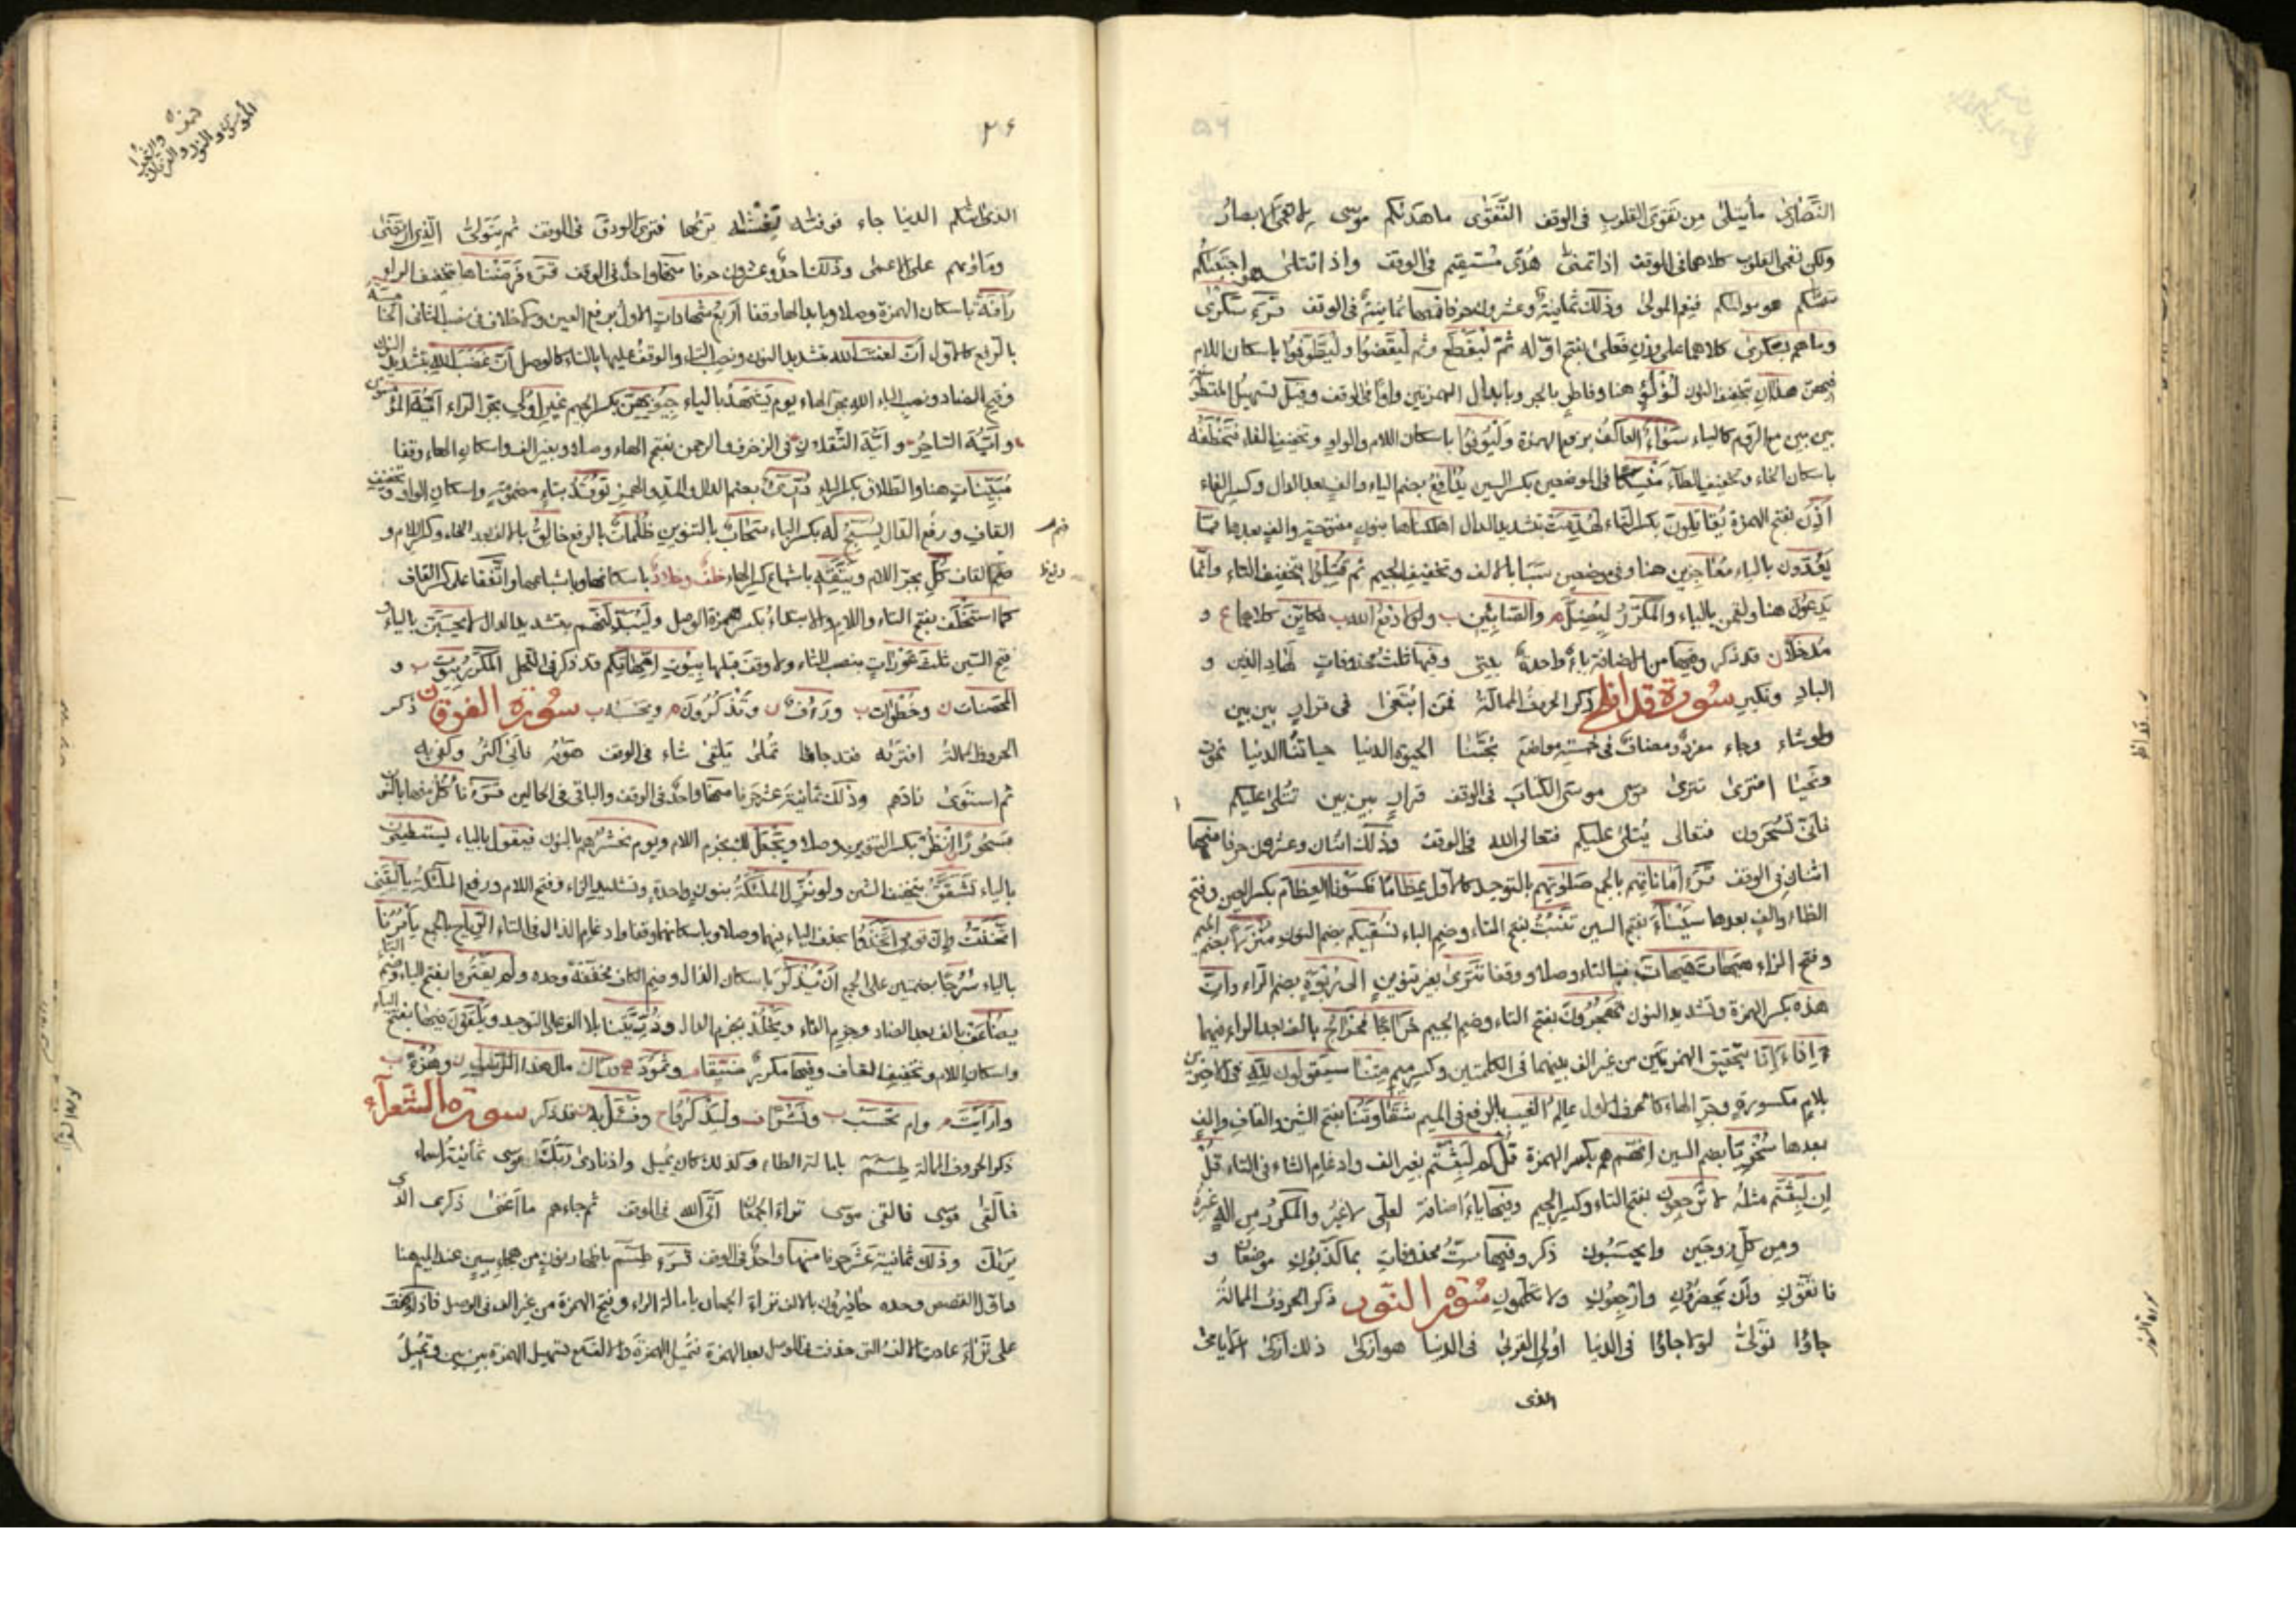 النَّصَارى ما يتلى مِن تقوَى القلوبِ فى الوقف التَّقوى ما هدىٰكم موسى لا تعمى الابصارُ
ولكن تعمى القلوب كلاهما فى الوقف اذا تمنىٰ هُدًى مُسْتقيم فى الوقف واذا تتلىٰ هو اجتبىٰكُم
سمّٰىكم هو مولىٰكم فنِعم المولىٰ وذلك ثمانيةٌ وعشرون حرفا منها ثمانيةٌ فى الوقف قرء سَكْرى
وما هم بسَكرى كلاهما على وزنِ فَعلى بفتح اوّله ثمّ لْيَقْطع وثم لْيَقْضُوا ولْيَطَّوَّفوا باسكان اللام
فيهنّ هذانِ بتخفيف النون لُؤلُؤٍ هنا وفاطرٍ بالجر وبابدال الهمزتين واوًا فى الوقف وقيل تسهيل المتطرّفة
بين بين مع الروم كالياء سَوَاءٌ العاكفُ برفع الهمزة ولْيُوفوا باسكان اللام والواو وتخفيف الفاء فتَخْطَفُه
باسكان الخاء وتخفيف الطاء مَنْسِكًا فى الموضعين بكسر السين يُدَافِعُ بضم الياء والفٍ بعد الدال وكسر الفاء
اَذِنَ بفتح الهمزة يُقاتِلونَ بكسر التاء لهُدِّمَتْ بتشديد الدال اهلكناها بنونٍ مفتوحةٍ والفٍ بعدها ممّا
يَعُدّون بالياء مُعَاجِزين هنا وفى موضعَى سَبَا بالالف وتخفيف الجيم ثم قُتِلُوا بتخفيف التاء وانّما
يَدعُونَ هنا ولقمٰن بالياء والمكرّرُ ليُضِلَّ والصّابئين ولولا دفعُ الله فكايّن كلاهما و
مُدخلا قد ذكر وفيها من الاضافة ياءٌ واحدةٌ بيتى وفيها ثلثُ محذوفاتٍ لهادِ الذين و
البادِ ونكيرِ سُورَة قَد افلح ذكر الحروف الممالة فمَن ابْتَغىٰ فى قرارٍ بين بين
ولو شاء وجاء مفردٌ ومضافٌ فى خمسة مواضع نجّٰىنا الحيوة الدنيا حياتُنا الدنيا نموت
ونحيا افترىٰ تترىٰ موسى موسى الكتابَ فى الوقف قرارٍ بين بين تُتلىٰ عليكم
فانّىٰ تُسْحَرون فتعالى يُتلىٰ عليكم فتعالى الله فى الوقف وذلك اثنان وعشرون حرفا منها
اثنان فى الوقف قرء اماناتِهِم بالجمع صَلوٰتِهم بالتوحيد كالاول عِظامًا فكسونا العِظام بكسر العين وفتح
الظاء والفٍ بعدها سَيْنَاءَ بفتح السين تَنْبُتُ بفتح التاء وضم الباء نُسْقيكم بضم النون مُنْزَلًا بضم الميم
وفتح الزاء هَيهاتَ هَيهاتَ بالتاء وصلا ووقفا تترىٰ بغير تنوينٍ الى رُبْوَةٍ بضم الراء واِنّ
هذه بكسر الهمزة وتشديد النون تَهْجُرُونَ بفتح التاء وضم الجيم خَرَاجًا فخَراجُ بالف بعد الراء فيهما
ءَاِذا ءَاِنّا بتحقيق الهمزتين من غير الف بينهما فى الكلمتين وكسر ميم مِتنا سيقولون لِلّٰهِ فى الاخيرين
بلامٍ مكسورةٍ وجرّ الهاء كالحرف الاول عالِمُ الغيب بالرفع فى الميم شَقَاوَتُنا بفتح الشين والقاف والفٍ
بعدها سُخْرِيًّا بضم السين اِنّهم هم بكسر الهمزة قُلْ كم لَبِثْتُم بغير الف وادغامِ الثاء فى التاء قُلْ
اِن لَبِثْتُم مثلُه لا تَرجِعون بفتح التاء وكسر الجيم وفيها ياءُ اضافة لعلّى لا غيرُ والمكرّرُ مِن الٰهٍ غيرُه
ومِن كلِّ زوجَين وايحسَبُون ذكر وفيها ستُّ محذوفاتٍ بما كذّبونِ موضعان و
فاتّقونِ واَن يحضرونِ وارْجعونِ ولا تكلّمونِ سُورة النّور ذكر الحروف الممالة
جاؤا تولّىٰ لولا جاؤا فى الدنيا اُولى القربىٰ فى الدنيا هو ازكىٰ ذلك ازكىٰ الايامىٰ
الذى
الذى اٰتٰىكم الدنيا جاء فوفّٰىه يَغْشٰىه يَرىٰها فترى الودقَ فى الوقف ثم يتولّىٰ الّذى ارتضىٰ
ومأوٰىهم على الاعمىٰ وذلك احدٌ وعشرون حرفا منها واحدٌ فى الوقف قرء فَرَضْنَاها بتخفيف الراء
رَأفَةٌ باسكان الهمزة وصلا وبابدالها وقفا اربعُ شهاداتٍ الاول برفع العين ولا خلاف فى نصب الثانى الخامسةُ
بالرفع كالاول اَنَّ لعنتَ الله بتشديد النون ونصب التاء والوقف عليها بالتاء كالوصل اَنَّ غَضَبَ الله بتشديد النون
وفتح الضاد ونصب الباء اللهِ بجرّ الهاء يوم يَشْهَدُ بالياء جِيُوبِهنّ بكسر الجيم غيرِ اُولى بجرّ الراء ايّهَ المؤمنون
وايّهَ السَّاحِرُ وايّهَ الثَّقلان فى الزخرف والرحمن بفتح الهاء وصلا وبغير الف واسكان الهاء وقفا
مُبَيِّناتٍ هنا والطلاق بكسر الياء دُرِّىءٌ بضم الدال والمد والهمز تُوقَدُ بتاءٍ مضمومةٍ واسكان الواو وتخفيف
القاف ورفع الدال يُسَبِّحُ له بكسر الباء سَحَابٌ بالتنوين ظُلماتٌ بالرفع خالِقُ بالالف بعد الخاء وكسر اللام و
ضم القاف كلِّ بجرّ اللام ويتّقِه باشباع كسر الهاء خلفٌ وخلّادٌ باسكانها وباشباعها واتّفقا على كسر القاف
كما استَخْلَفَ بفتح التاء واللام والابتداء بكسر همزة الوصل وليُبَدِّلنَّهم بتشديد الدال لا يحسَبَنّ بالياء و
فتح السين ثلثَ عَوْراتٍ بنصب الثاء ولا وقف قبلها بيُوتِ اِمِّهاتِكم قد ذكر فى النحل المكرّرُ بيُوت و
المحصنات وخُطُوات ورَءُوف وتَذَكَّرُون ويحسَبه سُورَة الفرقان ذكر
الحروف الممالة افترٰىه فقد جاؤا تُملىٰ يُلقىٰ شاء فى الوقف هوٰىه فابىٰ اكثرُ وكفىٰ به
ثم استوىٰ زادَهم وذلك ثمانيةَ عشرَ حرفا منها واحدٌ فى الوقف والباقى فى الحالين قرء نأكُلُ منها بالنون
مسحُورًاِ انْظُر بكسر التنوين وصلا ويَجْعَلْ لك بجزم اللام ويوم نحشُرُهم بالنون فيقول بالياء يستطيعون
بالياء تَشَقَّقُ بتخفيف الشين ونُزِّلَ الملٰئِكَةُ بنون واحدةٍ وتشديد الزاء وفتح اللام ورفع الملٰئكةُ يا لَيْتَنى
اتّخذتُ واِنّ قومى اتّخَذُوا بحذف الياء فيهما وصلا وباسكانهما وقفا وادغام الذال فى التاء الرّياحَ بالجمع يأمُرُنا
بالياء سُرُجًا بضمتين على الجمع اَن يَذْكُرَ باسكان الذال وضم الكاف مخففةً وحده ولم يَقْتُروا بفتح الياء وضم التاء
يُضَاعَفْ بالف بعد الضاد وجزم الفاء ويَخْلُدْ بجزم الدال وذُرِّيّتِنا بلا الف على التوحيد ويَلْقَوْنَ فيها بفتح الياء
واسكان اللام وتخفيف القاف وفيها مكررٌ ضَيِّقًا وثمُودَ مال هذا الرسول وهُزُءًا
وارأَيتَ وام تحسَب ونَشْرًا وليَذكُرُوا وفَسْئَل به قد ذكر سورة الشعرآء
ذكر الحروف الممالة طٰسٓمٓ بامالة الطاء وكذلك كان يُميل واذ نادىٰ ربُّكَ موسى ثمانيةُ اسماء
فالقىٰ موسى فالقىٰ موسى تراءَا الجمعان اتى الله فى الوقف ثم جاءهم ما اَغنىٰ ذكرىٰ الذى
يَرىٰكَ وذلك ثمانيةَ عشَرَ حرفا منها واحدٌ فى الوقف قرء طٰسٓمٓ باظهار نونٍ من هجاءِ سينٍ عند الميم هنا
واوّل القصص وحده حاذِرون بالالف تراءَا الجمعان بامالة الراء وفتح الهمزة من غير الف فى الوصل فاذا وقف
على تراءَا عادت الالف التى حذفت فى الوصل بعد الهمزة فتميل الهمزة والالف مع تسهيل الهمزة بين بين وتميلُ